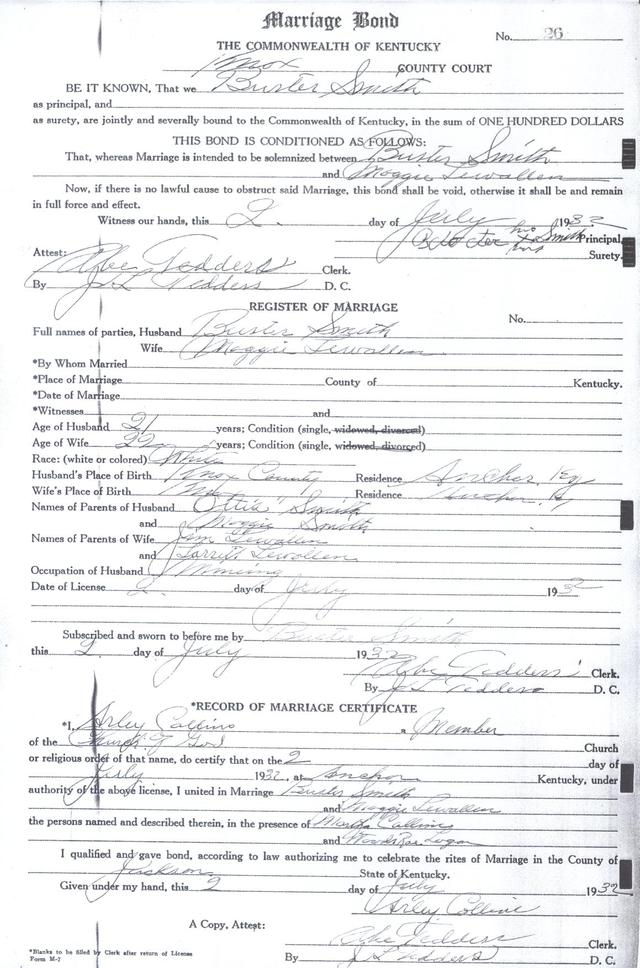 Marriage Bond
No. 26
THE COMMONWEALTH OF KENTUCKY
Knox COUNTY COURT
BE IT KNOWN, That we Buster Smith
as principal, and
as surety, are jointly and severally bound to the Commonwealth of Kentucky, in the sum of ONE HUNDRED DOLLARS
THIS BOND IS CONDITIONED AS FOLLOWS:
That, whereas Marriage is intended to be solemnized between Buster Smith
and Maggie Lewallen
Now, if there is no lawful cause to obstruct said Marriage, this bond shall be void, otherwise it shall be and remain
in full force and effect.
Witness our hands, this 2 day of July 1932
his
X Smith Principal,
Attest: Surety.
Abe Tedders Clerk.
By J L Tedders D. C.
REGISTER OF MARRIAGE
No.
Full names of parties, Husband Buster Smith
Wife Maggie Lewallen
*By Whom Married
*Place of Marriage County of Kentucky.
*Date of Marriage
*Witnesses and
Age of Husband 21 years; Condition (single, widowed, divorced)
Age of Wife 22 years; Condition (single, widowed, divorced)
Race: (white or colored) White
Husband's Place of Birth Knox County Residence Anchor, Ky
Wife's Place of Birth Residence Anchor, Ky
Names of Parents of Husband Smith
and Maggie Smith
Names of Parents of Wife Jim Lewallen
and Lewallen
Occupation of Husband Mining
Date of License 2 day of July 1932
Subscribed and sworn to before me by Buster Smith
this 2 day of July 1932
Abe Tedders Clerk.
By J L Tedders D. C.
*RECORD OF MARRIAGE CERTIFICATE
*I, Arley Collins a Member
of the Church of God Church
or religious order of that name, do certify that on the 2 day of
July 1932, at Anchor Kentucky, under
authority of the above license, I united in Marriage Buster Smith
and Maggie Lewallen
the persons named and described therein, in the presence of Martha Collins
and Logan
I qualified and gave bond, according to law authorizing me to celebrate the rites of Marriage in the County of
Jackson State of Kentucky.
Given under my hand, this 2 day of July 1932
Arley Collins
A Copy, Attest:
Abe Tedders Clerk.
By J L Tedders D. C.
*Blanks to be filled by Clerk after return of License
Form M-7